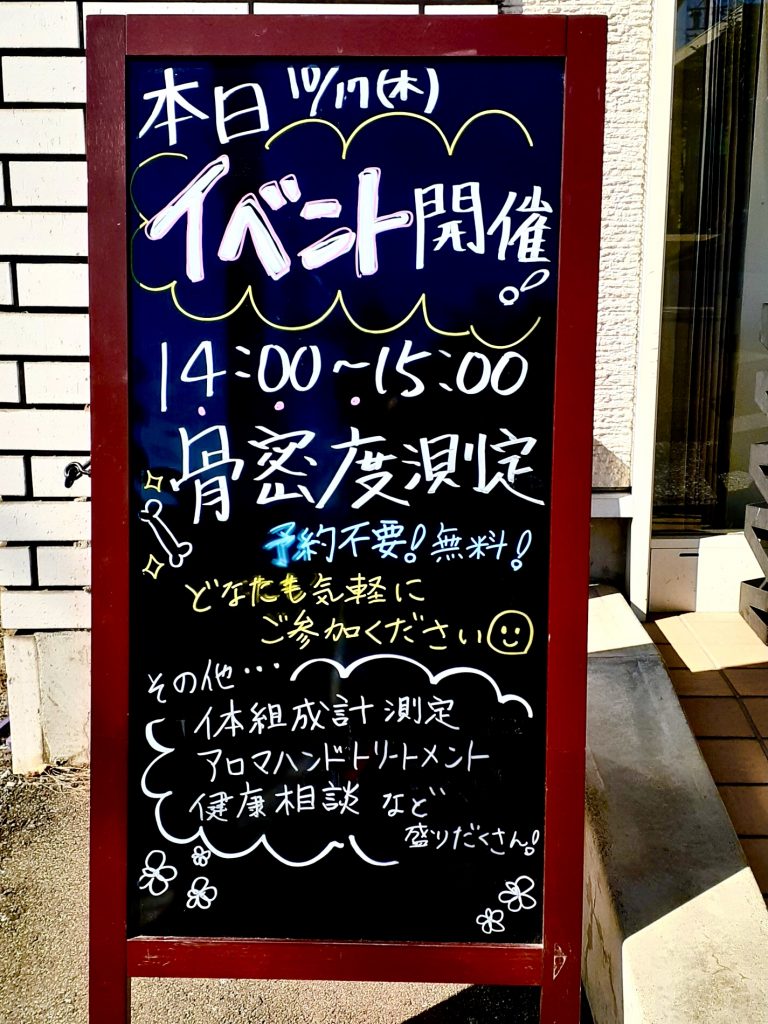 本日 10/17(木)
イベント開催!
14:00~15:00
骨密度測定
予約不要!無料!
どなたも気軽に
ご参加ください
その他…
体組成計測定
アロマハンドトリートメント
健康相談 など
盛りだくさん!